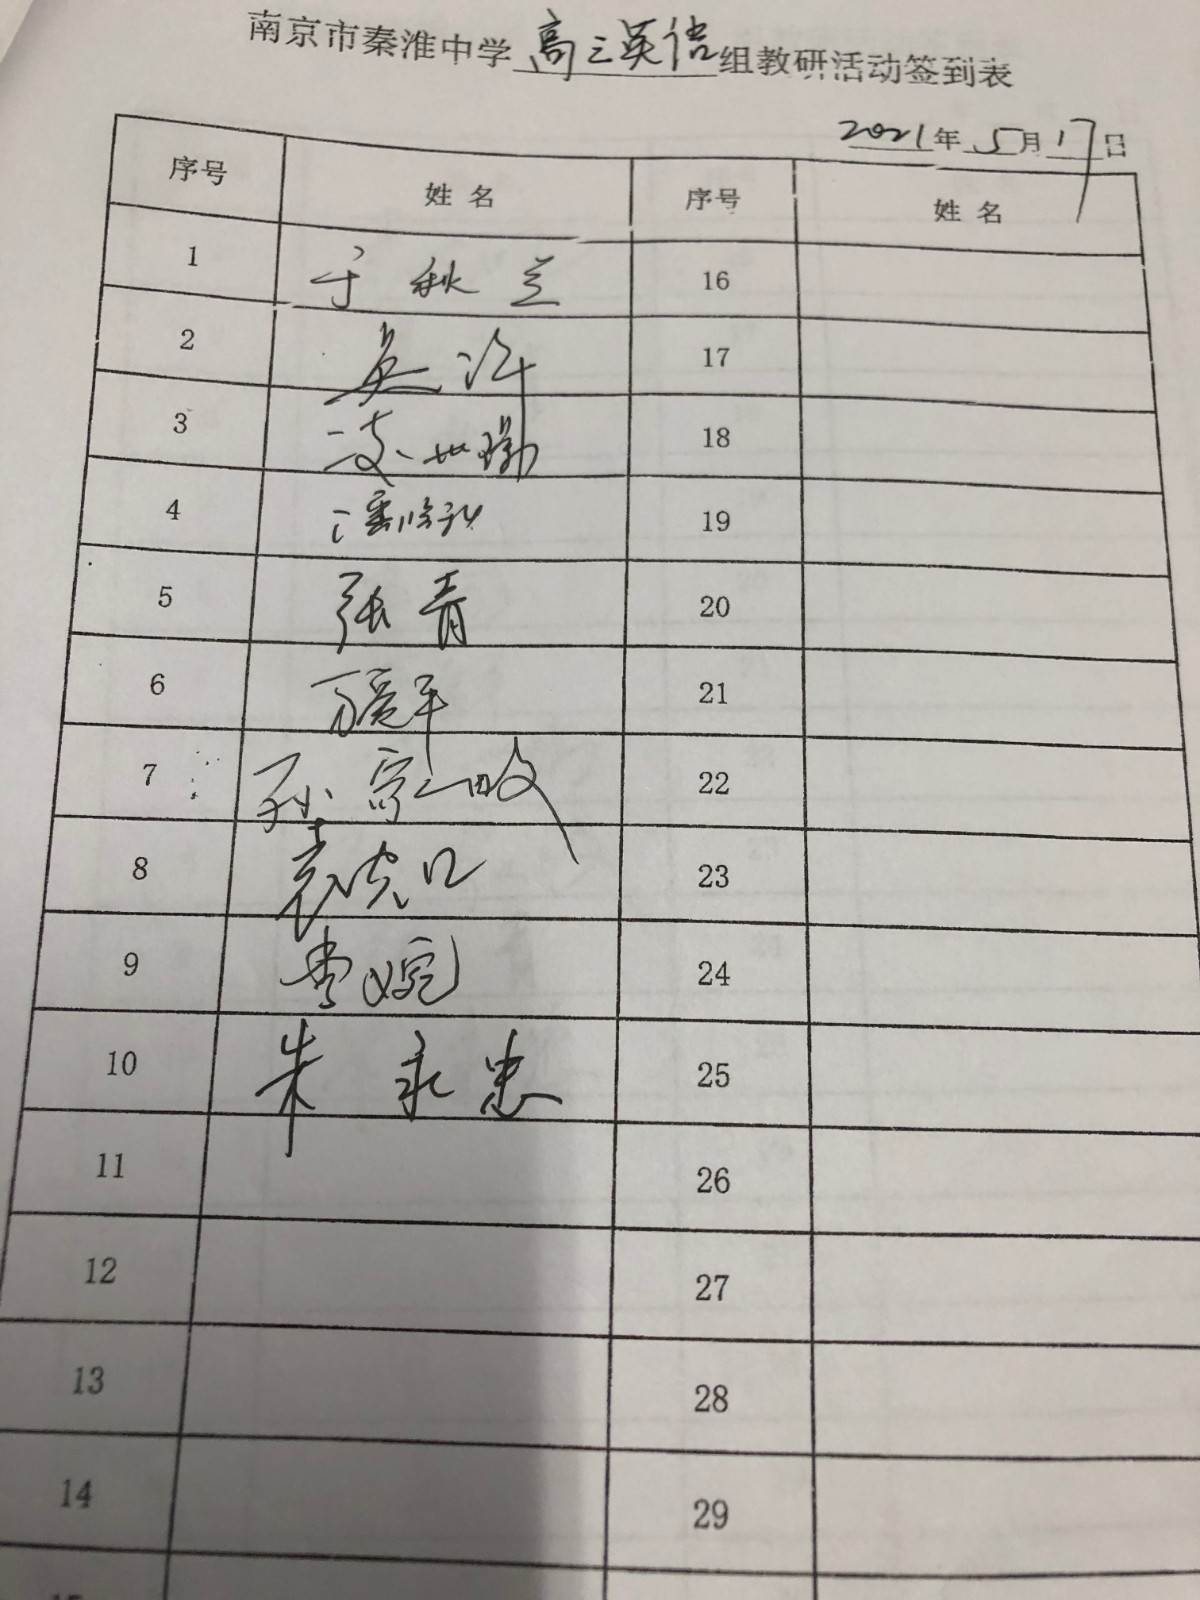 南京市秦淮中学高三英语组教研活动签到表
2021年5月17日
序号 姓名 序号 姓名
1 于秋兰 16
2 吴许 17
3 凌世瑜 18
4 19
5 张青 20
6 万爱平 21
7 孙富敏 22
8 袁 23
9 李婉 24
10 朱永忠 25
11 26
12 27
13 28
14 29